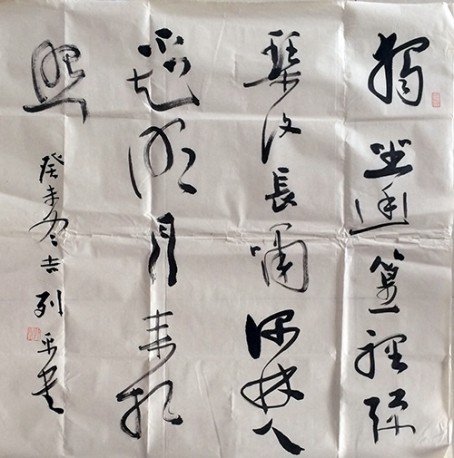 獨坐幽篁裡彈
琴復長嘯深林人
不知明月来相
照
癸未冬吉列書